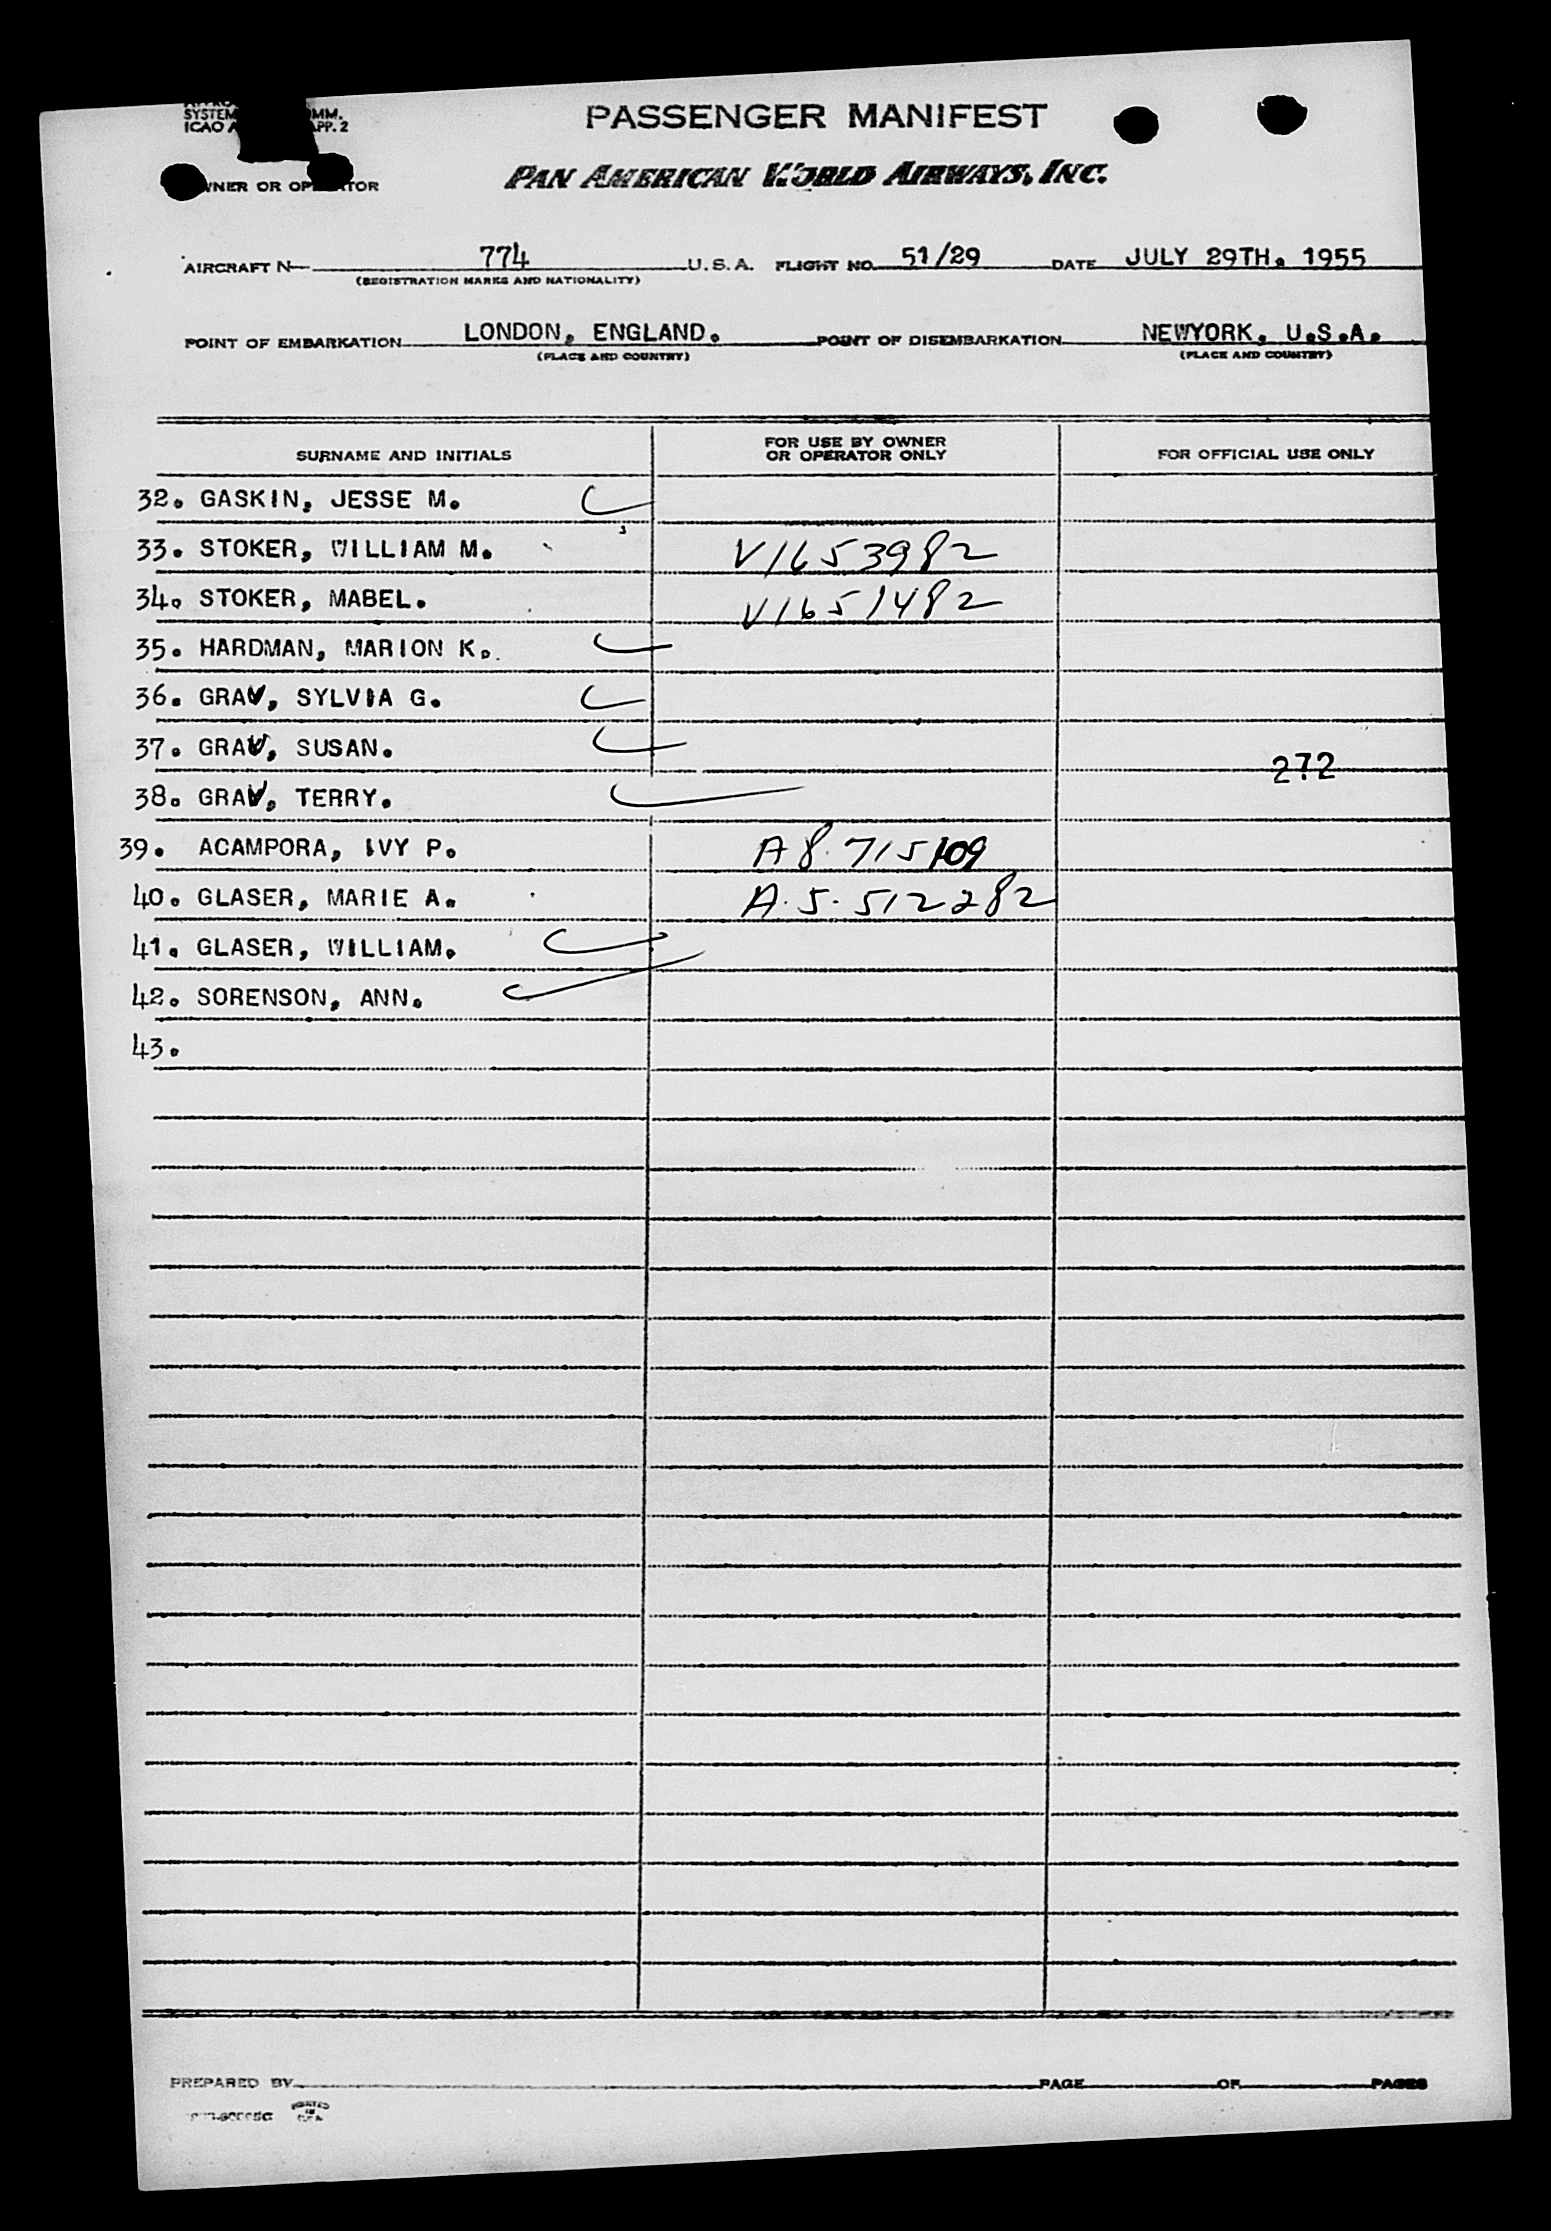 SYSTEM MM.
ICAO A PP. 2
PASSENGER MANIFEST
OWNER OR OPERATOR
PAN AMERICAN WORLD AIRWAYS, INC.
AIRCRAFT N 774 U.S.A. FLIGHT NO. 51/29 DATE JULY 29TH. 1955
(REGISTRATION MARKS AND NATIONALITY)
POINT OF EMBARKATION LONDON, ENGLAND. POINT OF DISEMBARKATION NEWYORK, U.S.A.
(PLACE AND COUNTRY) (PLACE AND COUNTRY)
SURNAME AND INITIALS FOR USE BY OWNER OR OPERATOR ONLY FOR OFFICIAL USE ONLY
32. GASKIN, JESSE M.
33. STOKER, WILLIAM M. V1653982
34. STOKER, MABEL. V1651482
35. HARDMAN, MARION K.
36. GRAV, SYLVIA G.
37. GRAV, SUSAN.
272
38. GRAV, TERRY.
39. ACAMPORA, IVY P. A8.715109
40. GLASER, MARIE A. A.5.512282
41. GLASER, WILLIAM.
42. SORENSON, ANN.
43.
PREPARED BY PAGE OF PAGES
PRINTED IN U.S.A.